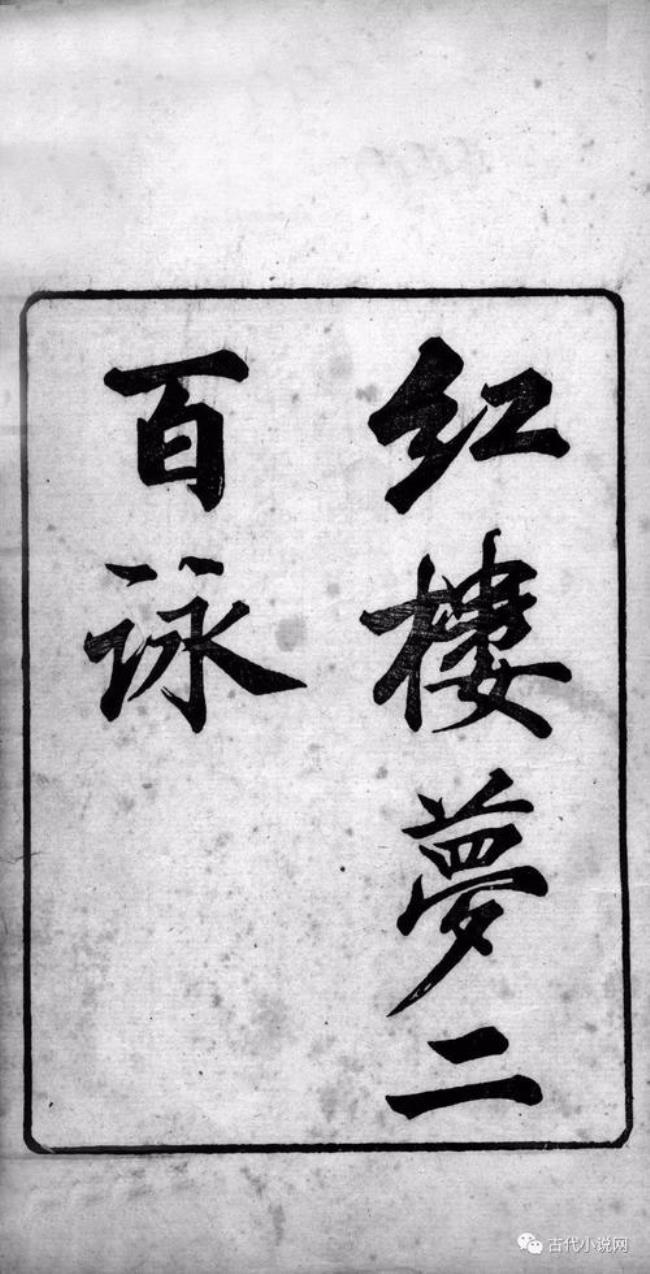 红楼夢二
百詠
古代小说网